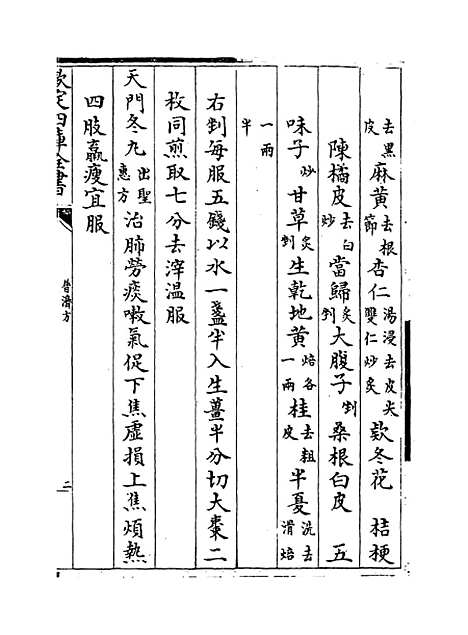 去黑皮麻黄去根節杏仁湯浸去皮尖雙仁炒炙欵冬花 桔梗
陳橘皮去白炒當歸炙剉大腹子剉桑根白皮 五
味子炒甘草炙剉生乾地黄焙各一兩桂去粗皮半夏洗去滑焙
一兩半
右剉每服五錢以水一盞半入生薑半分切大棗二
枚同煎取七分去滓温服
天門冬丸出聖惠方治肺勞痰嗽氣促下焦虛損上焦煩熱
四肢羸瘦宜服
欽定四庫全書
普濟方
二